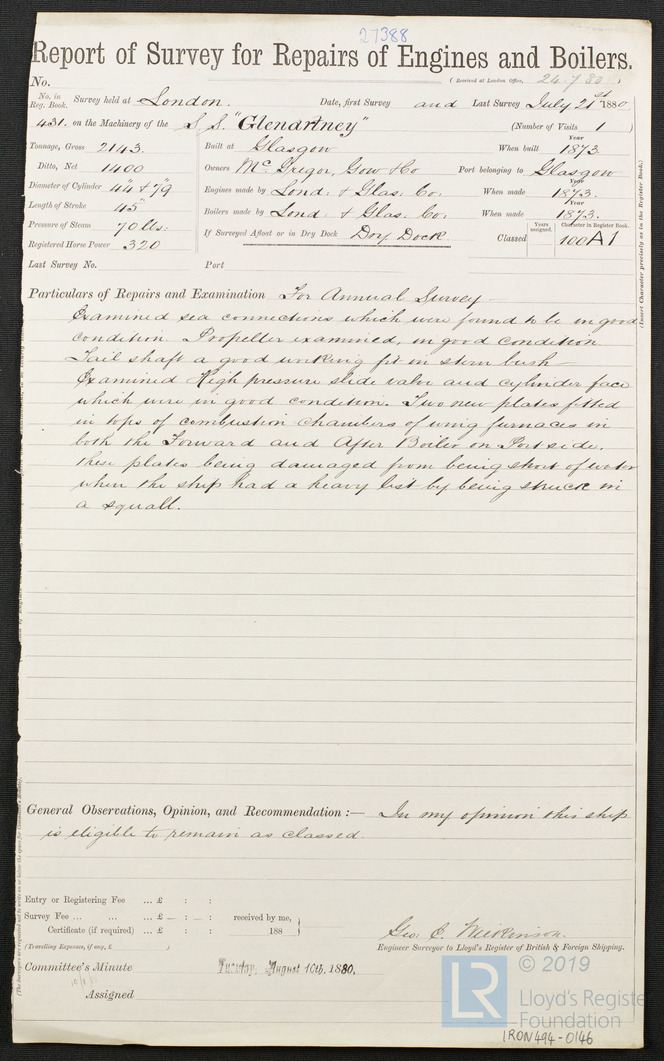 27388
Report of Survey for Repairs of Engines and Boilers.
No.
(Received at London Office, 24.7.80)
No. in Reg. Book. Survey held at London. Date, first Survey and Last Survey July 21st 1880
431. on the Machinery of the S.S. "Glenartney" (Number of Visits 1)
Tonnage, Gross 2143. Built at Glasgow When built Year 1873
Ditto, Net 1400 Owners McGregor, Gow & Co Port belonging to Glasgow
Diameter of Cylinder 44" & 79 Engines made by Lond: & Glas: Co: When made Year 1873.
Length of Stroke 45" Boilers made by Lond: & Glas: Co: When made Year 1873.
Pressure of Steam 70 lbs: If Surveyed Afloat or in Dry Dock Dry Dock Classed Years assigned. Character in Register Book. 100A1
Registered Horse Power 320
Last Survey No. Port
(Insert Character precisely as in the Register Book.)
Particulars of Repairs and Examination For Annual Survey
Examined sea connections which were found to be in good
condition. Propeller examined, in good condition
Tail shaft a good working fit in stern bush
Examined High pressure slide valve and cylinder face
which were in good condition. Two new plates fitted
in tops of combustion chambers of wing furnaces in
both the Forward and After Boiler on Port side.
these plates being damaged from being short of water
when the ship had a heavy list by being struck in
a squall.
General Observations, Opinion, and Recommendation :— In my opinion this ship
is eligible to remain as classed
Entry or Registering Fee ... £ : :
Survey Fee ... ... ... £ — : — : received by me,
Certificate (if required) ... £ : : 188
(Travelling Expenses, if any, £ )
Geo. E. Wilkinson.
Engineer Surveyor to Lloyd's Register of British & Foreign Shipping.
Committee's Minute Tuesday, August 10th, 1880.
Assigned
LR © 2019
Lloyd's Registe
Foundation
IRON494-0146